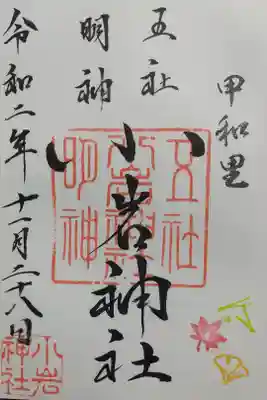 甲和里
五社
明神
小岩神社
令和二年十一月二十八日
五社
小岩神社
明神
小岩
神社